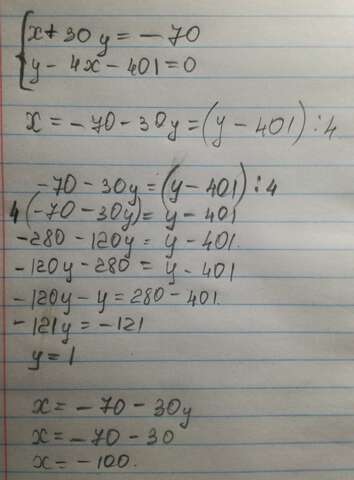 x + 30y = - 70
y - 4x - 401 = 0
x = - 70 - 30y = (y - 401) : 4
- 70 - 30y = (y - 401) : 4
4(- 70 - 30y) = y - 401
- 280 - 120y = y - 401.
- 120y - 280 = y - 401
- 120y - y = 280 - 401.
- 121y = - 121
y = 1
x = - 70 - 30y
x = - 70 - 30
x = - 100.